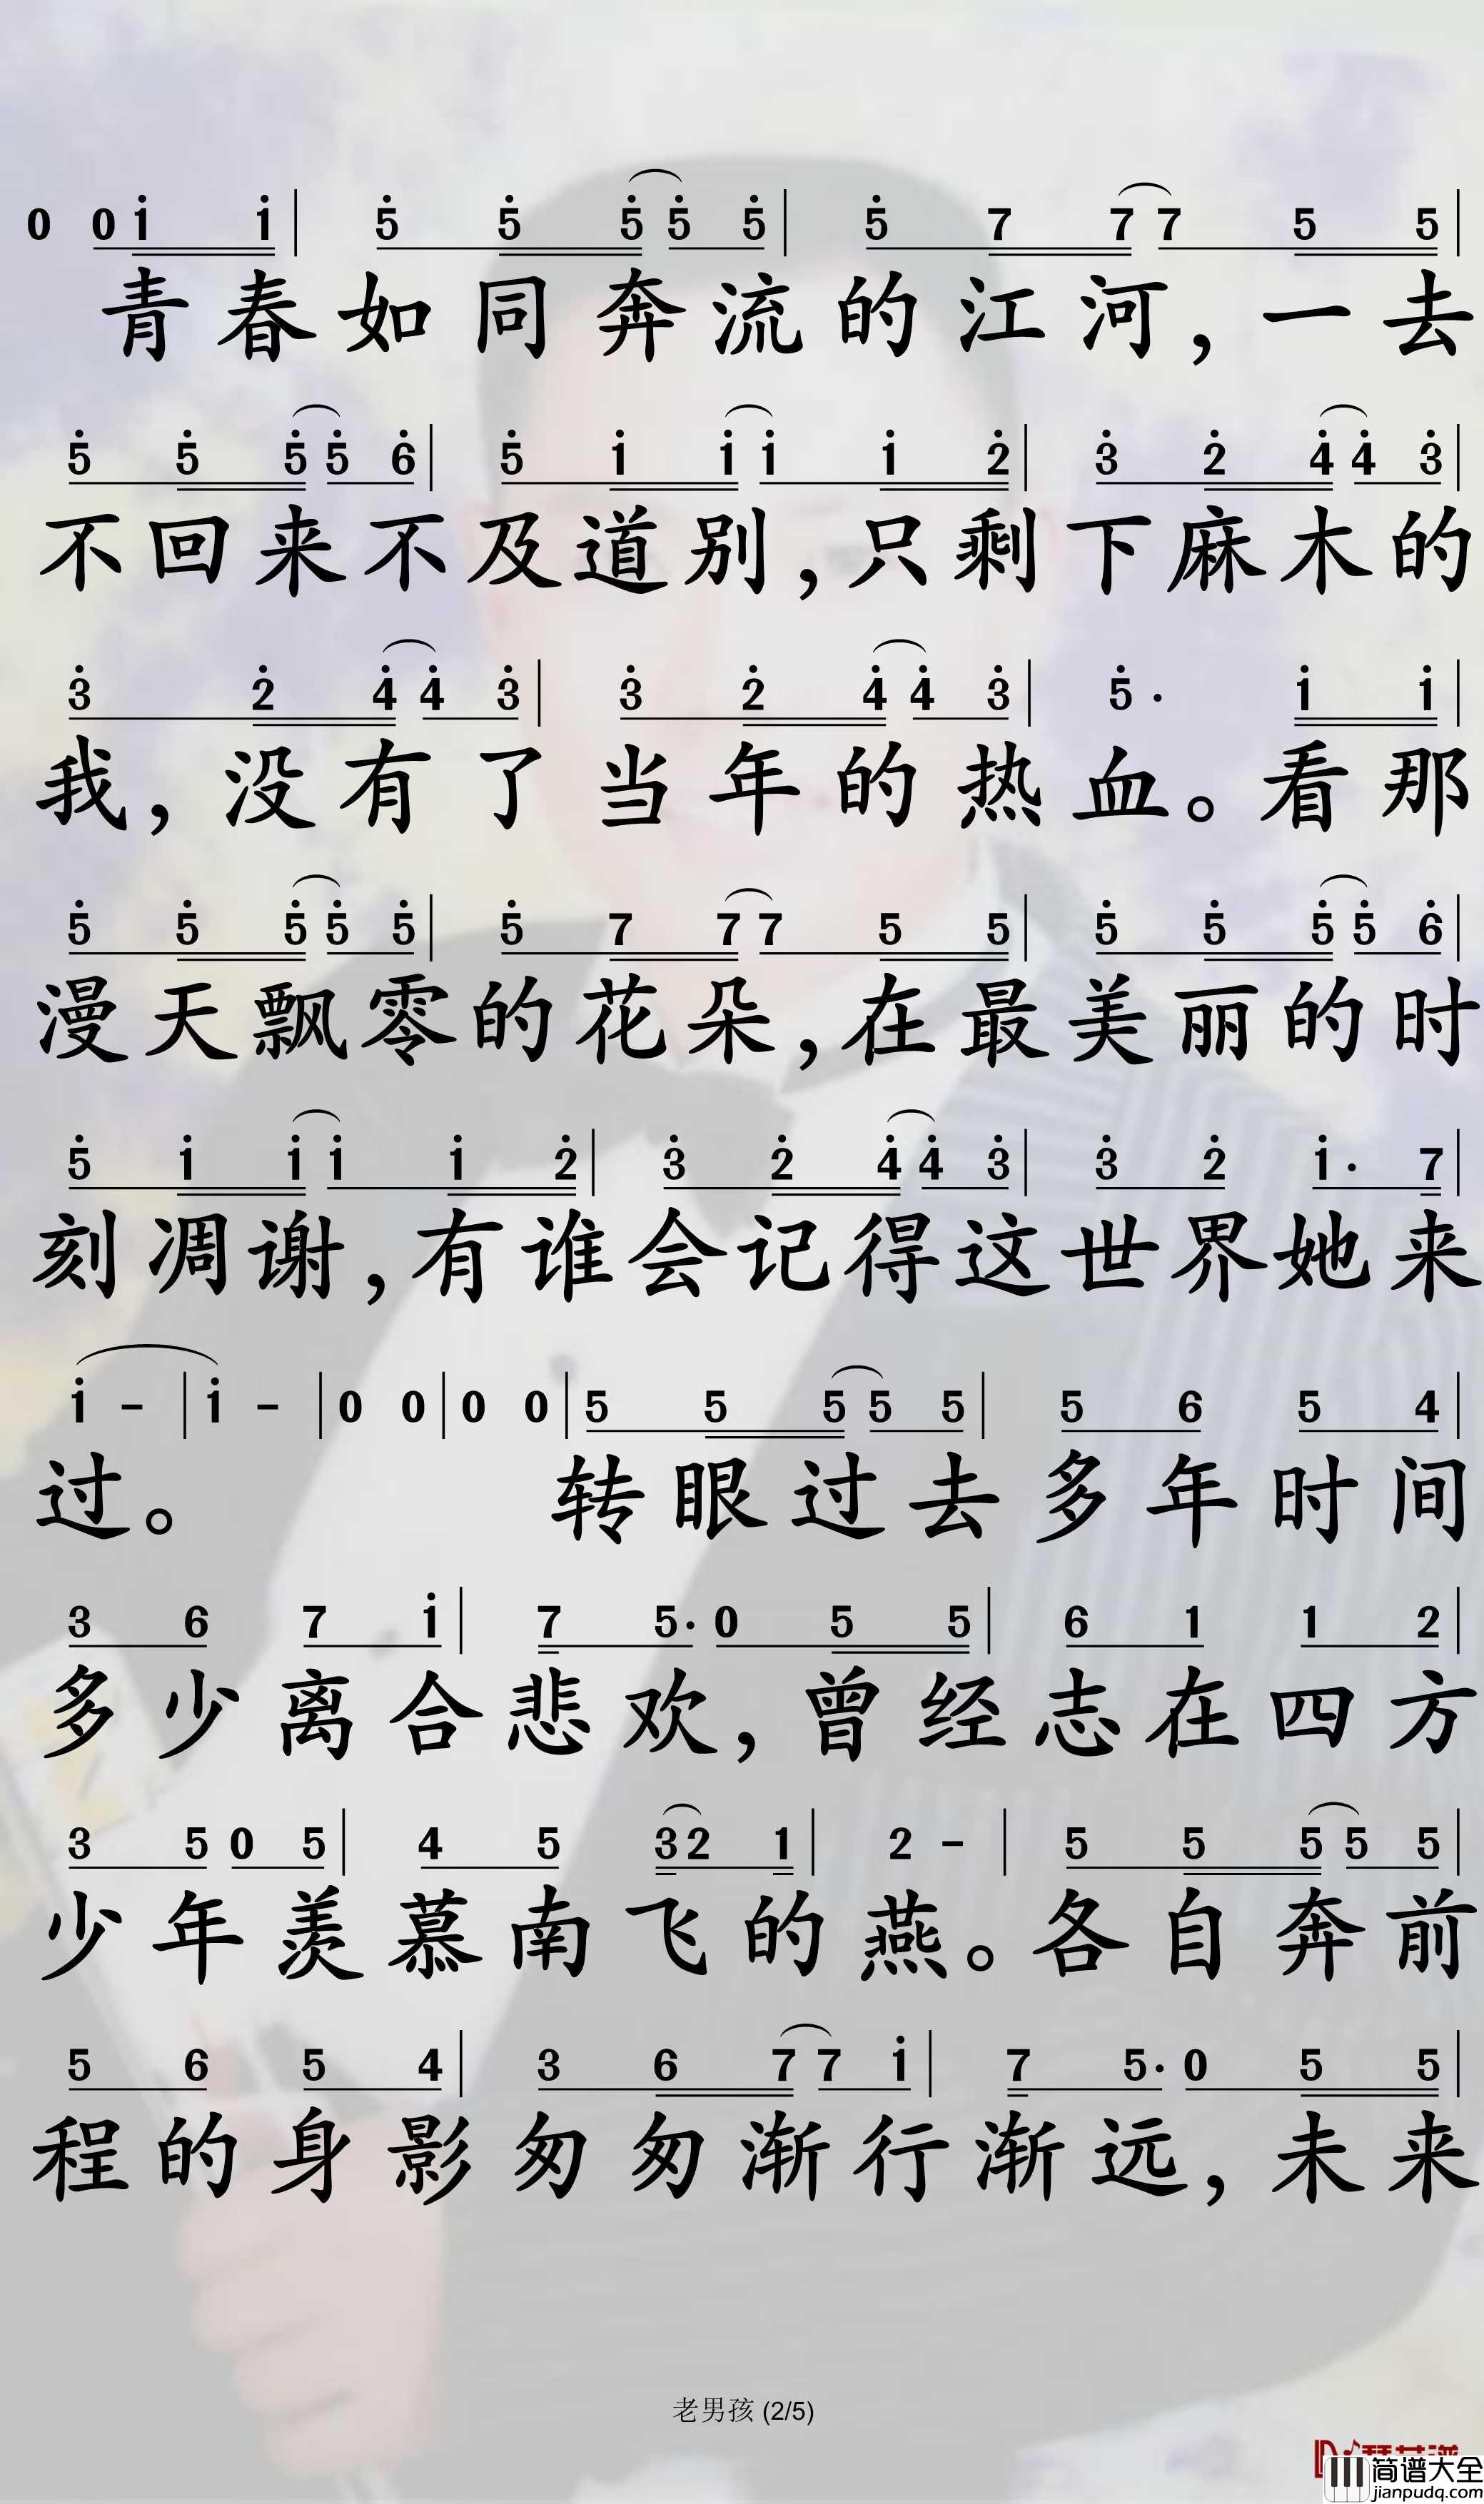 0 0 1 1 | 5 5 5 5 5 | 5 7 7 7 5 5 |
青春如同奔流的江河，一去
5 5 5 5 6 | 5 1 1 1 1 2 | 3 2 4 4 3 |
不回来不及道别，只剩下麻木的
3 2 4 4 3 | 3 2 4 4 3 | 5 · 1 1 |
我，没有了当年的热血。看那
5 5 5 5 5 | 5 7 7 7 5 5 | 5 5 5 5 6 |
漫天飘零的花朵，在最美丽的时
5 1 1 1 1 2 | 3 2 4 4 3 | 3 2 1 · 7 |
刻凋谢，有谁会记得这世界她来
1 - | 1 - | 0 0 | 0 0 | 5 5 5 5 5 | 5 6 5 4 |
过。转眼过去多年时间
3 6 7 1 | 7 5 · 0 5 5 | 6 1 1 2 |
多少离合悲欢，曾经志在四方
3 5 0 5 | 4 5 3 2 1 | 2 - | 5 5 5 5 5 |
少年羡慕南飞的燕。各自奔前
5 6 5 4 | 3 6 7 7 1 | 7 5 · 0 5 5 |
程的身影匆匆渐行渐远，未来
老男孩 (2/5)
简谱大全
jianpudq.com